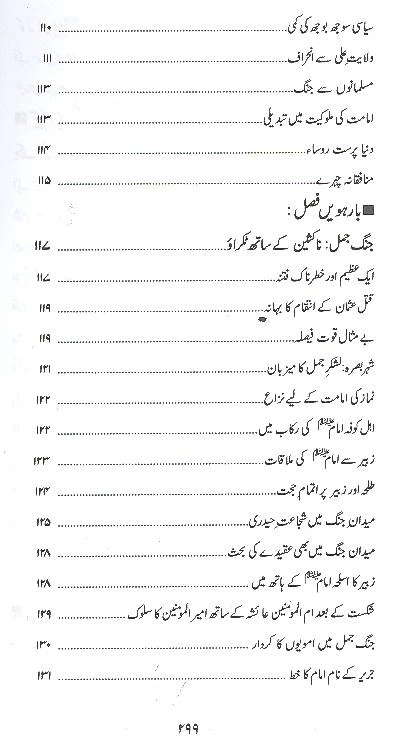 سیاسی سوجھ بوجھ کی کمی ........ ۱۱۰
ولایت علی سے انحراف ........ ۱۱۱
مسلمانوں سے جنگ ........ ۱۱۳
امامت کی ملوکیت میں تبدیلی ........ ۱۱۳
دنیا پرست روساء ........ ۱۱۴
منافقانہ چہرے ........ ۱۱۵
■ بارہویں فصل :
جنگ جمل: ناکثین کے ساتھ ٹکراؤ ........ ۱۱۷
ایک عظیم اور خطرناک فتنہ ........ ۱۱۷
قتل عثمان کے انتقام کا بہانہ ........ ۱۱۹
بے مثال قوت فیصلہ ........ ۱۱۹
شہر بصرہ: لشکرِ جمل کا میزبان ........ ۱۲۱
نماز کی امامت کے لیے نزاع ........ ۱۲۲
اہل کوفہ امام کی رکاب میں ........ ۱۲۲
زبیر سے امام کی ملاقات ........ ۱۲۳
طلحہ اور زبیر پر اتمام حجت ........ ۱۲۴
میدان جنگ میں شجاعت حیدری ........ ۱۲۵
میدان جنگ میں بھی عقیدے کی بحث ........ ۱۲۸
زبیر کا اسلحہ امام کے ہاتھ میں ........ ۱۲۸
شکست کے بعد ام المومنین عائشہ کے ساتھ امیر المومنین کا سلوک ........ ۱۲۹
جنگ جمل میں امویوں کا کردار ........ ۱۳۰
جریر کے نام امام کا خط ........ ۱۳۱
۲۹۹